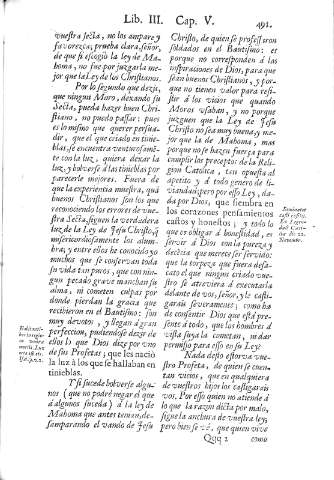 Lib. III. Cap. V. 491.
vuestra secta, no los ampare y
favorezca; prueba clara, señor,
de que si escogiò la ley de Ma-
homa, no fue por juzgarla me-
jor que la Ley de los Christianos.
Por lo segundo que dezia,
que ningun Moro, dexando su
Secta, pueda hazer buen Chri-
stiano, no puedo passar: pues
es lo mismo que querer persua-
dir, que el que estado en tinie-
blas, se encuentra venturosamẽ-
te con la luz, quiera dexar la
luz, y bolverse à las tinieblas por
parecerle mejores. Fuera de
que la experiencia muestra, quã
buenos Christianos son los que
reconociendo los errores de vue-
stra Secta, siguen la verdadera
luz de la Ley de Jesu Christo, q̃
misericordiosamente los alum-
bra; y entre ellos he conocido yo
muchos que se conservan toda
su vida tan puros, que con nin-
gun pecado grave manchan su
alma, ni cometen culpas por
donde pierdan la gracia que
recibieron en el Bautismo: son
muy devotos, y llegan à gran
perfeccion, pudiendose dezir de
ellos lo que Dios dize por vno
de sus Profetas; que les naciò
la luz à los que se hallaban en
tinieblas.
Y si sucede bolverse algu-
nos (que no podrè negar el que
à algunos suceda) à la ley de
Mahoma que antes tenian, de-
samparando el vando de Jesu
Christo, de quien se professaron
soldados en el Bautismo: es
porque no corresponden à las
inspiraciones de Dios, para que
sean buenos Christianos, y por-
que no tienen valor para resi-
stir à los vicios que quando
Moros vsaban, y no porque
juzguen que la Ley de Jesu
Christo no sea muy buena, y me-
jor que la de Mahoma, mas
porque no se hazen fuerça para
cumplir los preceptos de la Reli-
gion Catolica, tan opuesta al
apetito y à todo genero de li-
viandad: pero por esso Ley, da-
da por Dios, que siembra en
los corazones pensamientos
castos y honestos; y todo lo
que es obligar à honestidad, en
servir à Dios con la pureza y
decencia que merece ser servido:
que la torpeza que fuera desa-
cato el que ningun criado vue-
stro se atreviera à executarla
delante de vos, señor, y le casti-
garais severamente; como ha
de consentir Dios que està pre-
sente à todo, que los hombres à
vista suya la cometan, ni dar
permisso para esso en su Ley?
Nada desto estorva vue-
stro Profeta, de quien se cuen-
tan vicios, que en qualquiera
de vuestros hijos los castigarais
vos. Por esso quien no atiende à
lo que la razòn dicta por malo,
sigue la anchura de vuestra ley;
pero bien se vè, que quien vive
Qqq 2 como